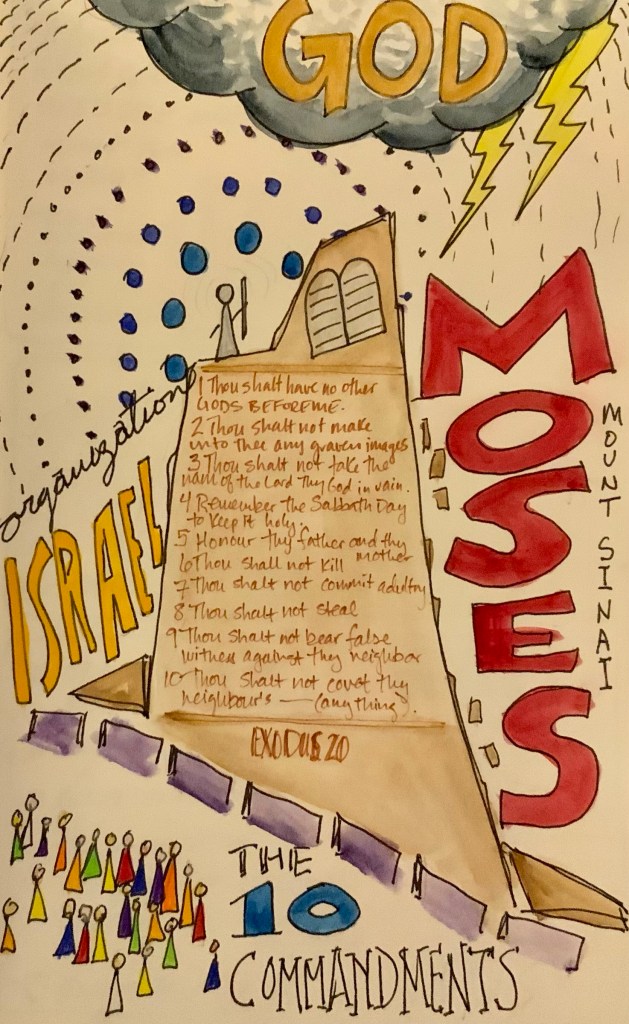 GOD
MOSES
MOUNT SINAI
organization
ISRAEL
1 Thou shalt have no other
GODS BEFORE ME.
2 Thou shalt not make
unto thee any graven images
3 Thou shalt not take the
nam of the Lord Thy God in vain.
4 Remember the Sabbath Day
to keep it holy.
5 Honour thy father and thy
mother
6 Thou shall not kill
7 Thou shalt not commit adultry
8 Thou shalt not steal
9 Thou shalt not bear false
witness against thy neighbor
10 Thou shalt not covet thy
neighbour's — (anything).
EXODUS 20
THE
10
COMMANDMENTS